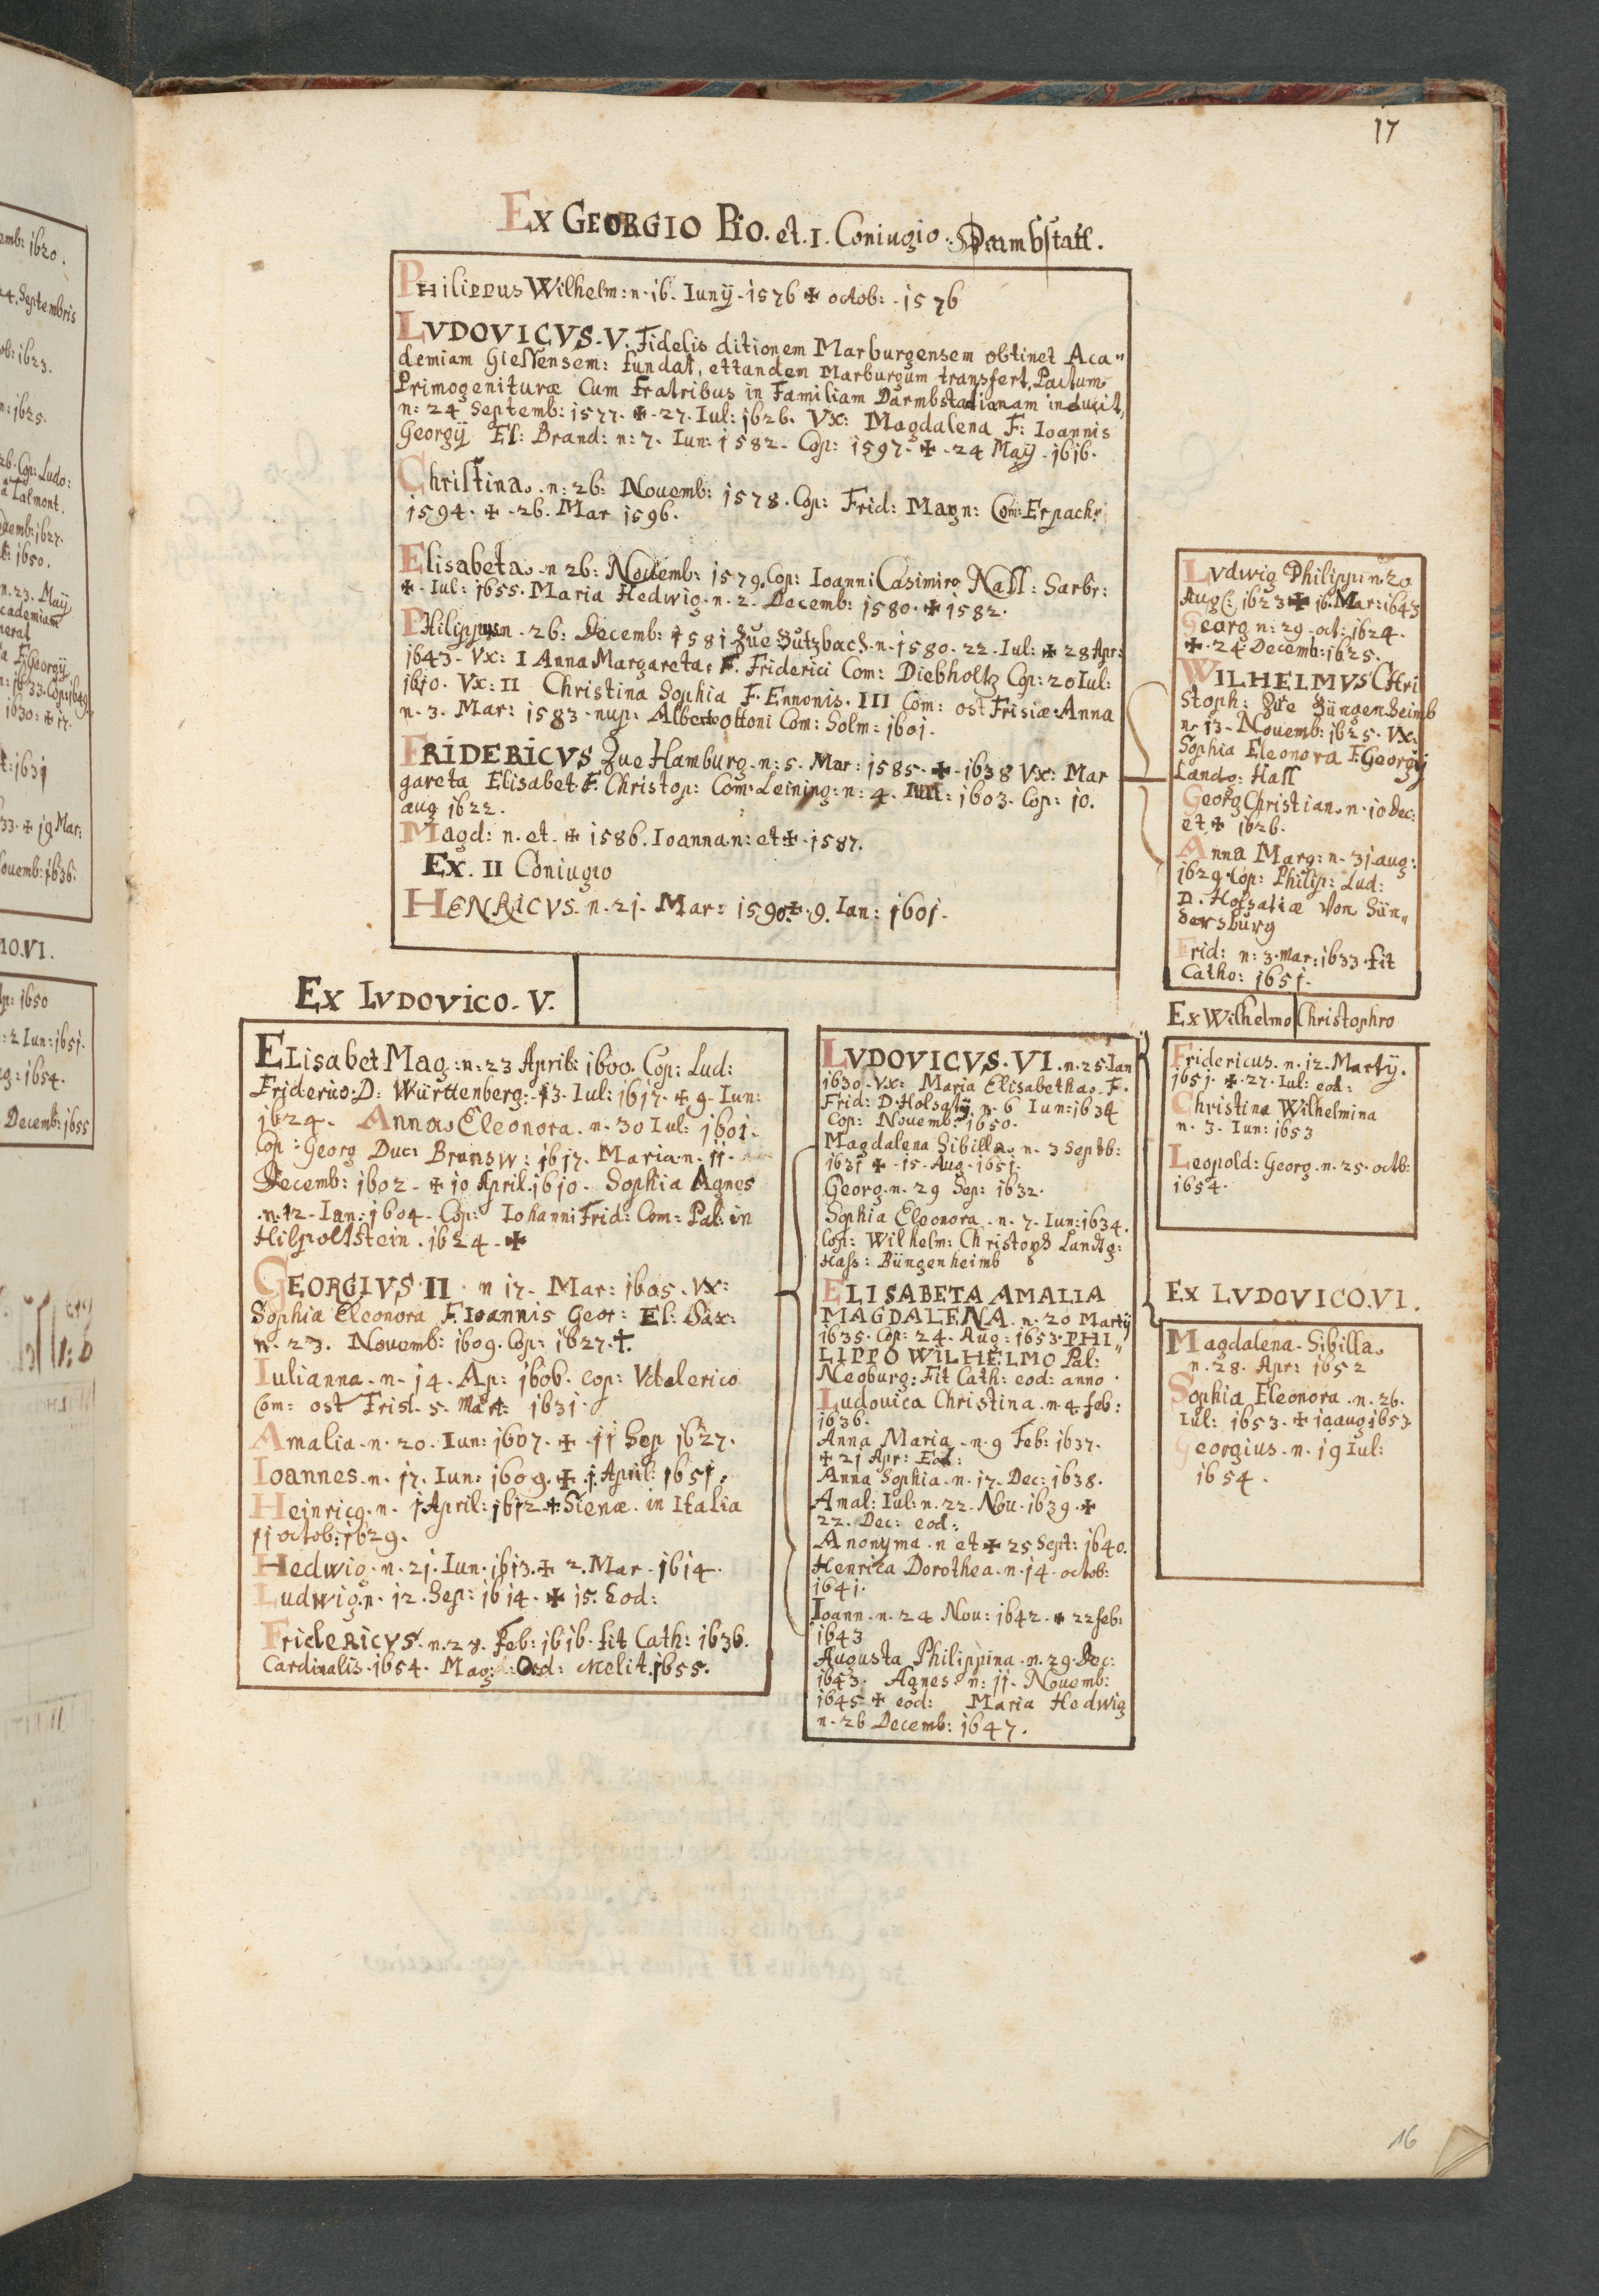 17
Ex GEORGIO PiO. et. I. Coniugio. Darmbstatt.
Philippus Wilhelm: n. 16. Iunÿ. 1576 ✠ octob: . 1576
LVDOVICVS. V. Fidelis ditionem Marburgensem obtinet Aca"
demiam Giessensem: fundat, ettandem Marburgum transfert, Pactum
Primogenituræ Cum Fratribus in Familiam Darmbstadianam inducit,
n: 24 Septemb: 1577. ✠. 27. Iul: 1626. Vx: Magdalena F: Ioannis
Georgÿ El: Brand: n: 7. Iun: 1582. Cop: 1597. ✠. 24 Maÿ. 1616.
Christina. n: 26: Nouemb: 1578. Cop: Frid: Magn: Com: Erpach:
1594. ✠. 26. Mar 1596.
Elisabeta. n 26: Nouemb: 1579. Cop: Ioanni Casimiro Nass: Sarbr:
✠. Iul: 1655. Maria Hedwig. n. 2. Decemb: 1580. ✠ 1582.
PHilippus n. 26: Decemb: 1581 Zue Butzbach. n. 1580. 22. Iul: ✠ 28 Apr:
1643. Vx: I Anna Margareta: F. Friderici Com: Diebholtz Cop: 20 Iul:
1610. Vx: II Christina Sophia F. Ennonis. III Com: ost Frisiæ: Anna
n. 3. Mar: 1583. nup. Alberto ottoni Com: Solm: 1601.
FRIDERICVS Zue Hamburg. n: 5. Mar: 1585. ✠. 1638 Vx: Mar
gareta Elisabet. F. Christop: Com: Leining: n: 4. Iul: 1603. Cop: 10.
aug 1622.
Magd: n. et. ✠ 1586. Ioanna n: et ✠. 1587.
Ex. II Coniugio
HENRICVS. n. 21. Mar: 1590. ✠. 9. Ian: 1601.
Lvdwig Philipp: n. 20
Aug: 1623 ✠ 16. Mar: 1643
Georg n: 29. oct: 1624.
✠. 24 Decemb: 1625.
WILHELMVS CHri
stoph: Zue Büngenheimb
n. 13. Nouemb: 1625. Vx:
Sophia Eleonora F. Georgÿ
Landg: Hass
Georg Christian. n. 10 Dec:
et ✠ 1626.
Anna Marg: n. 31. aug:
1629. Cop: Philip: Lud:
D. Holsatiæ Von Sün"
dersburg
Frid: n: 3. mar: 1633. fit
Catho: 1651.
Ex LVDOVICO. V.
ELisabet Mag: n: 23 April: 1600. Cop: Lud:
Friderico. D: Württenberg: 13. Iul: 1617. ✠ 9. Iun:
1624. Anna Eleonora. n. 30 Iul: 1601.
Cop: Georg Duc: Brunsw: 1617. Maria n. 11.
Decemb: 1602. ✠ 10 April. 1610. Sophia Agnes
n. 12. Ian: 1604. Cop: Iohanni Frid: Com: Pal: in
Hilpoltstein. 1624. ✠
GEORGIVS. II. n 17. Mar: 1605. Vx:
Sophia Eleonora F. Ioannis Geor: El: Sax:
n. 23. Nouemb: 1609. Cop: 1627. ✝.
Iulianna. n. 14. Ap: 1606. cop: Vdalerico
Com: ost Fris. 5. Mart: 1631.
Amalia. n. 20. Iun: 1607. ✠. 11 Sep 1627.
Ioannes. n. 17. Iun: 1609. ✠. 1. April: 1651.
Heinricg. n. 1 April: 1612 ✠ Sienæ. in Italia
11 octob: 1629.
Hedwig. n. 21. Iun. 1613. ✠ 2. Mar. 1614.
Ludwig. n. 12. Sep: 1614. ✠ 15. Eod:
FridERICVS. n. 28. Feb: 1616. fit Cath: 1636.
Cardinalis. 1654. Mag: Ord: Melit. 1655.
LVDOVICVS. VI. n. 25. Ian
1630. Vx: Maria Elisabetha. F.
Frid: D. Holsatÿ. n. 6 Iun: 1634
Cop: Nouemb: 1650.
Magdalena Sibilla. n. 3 Septb:
1631 ✠. 15. Aug. 1651.
Georg. n. 29 Sep: 1632.
Sophia Eleonora. n. 7. Iun: 1634.
Cop: Wilhelm: Christoph Landtg:
Hass: Büngenheimb
ELISABETA AMALIA
MAGDALENA. n. 20 Martÿ
1635. Cop: 24. Aug: 1653. PHI"
LIPPO WILHELMO Pal:
Neoburg: Fit Cath: eod: anno.
Ludouica Christina. n. 4. feb:
1636.
Anna Maria. n. 9 Feb: 1637.
✠ 21 Apr: Eod:
Anna Sophia. n. 17. Dec: 1638.
Amal: Iul: n. 22. Nou. 1639. ✠
22. Dec: eod:
Anonyma. n et ✠ 25 Sept: 1640.
Henrica Dorothea. n. 14. octob:
1641.
Ioann. n. 24 Nou: 1642. ✠ 22 feb:
1643
Augusta Philippina. n. 29. Dec:
1643. Agnes: n: 11. Nouemb:
1645 ✠ eod: Maria Hedwig
n. 26 Decemb: 1647.
Ex Wilhelmo Christophro
Fridericus. n. 12. Martÿ.
1651. ✠. 27. Iul: eod:
Christina Wilhelmina
n. 3. Iun: 1653
Leopold: Georg. n. 25. octb:
1654.
Ex LVDOVICO. VI.
Magdalena. Sibilla.
n. 28. Apr: 1652
Sophia Eleonora. n. 26.
Iul: 1653. ✠ 10 aug 1653
Georgius. n. 19 Iul:
1654.
16